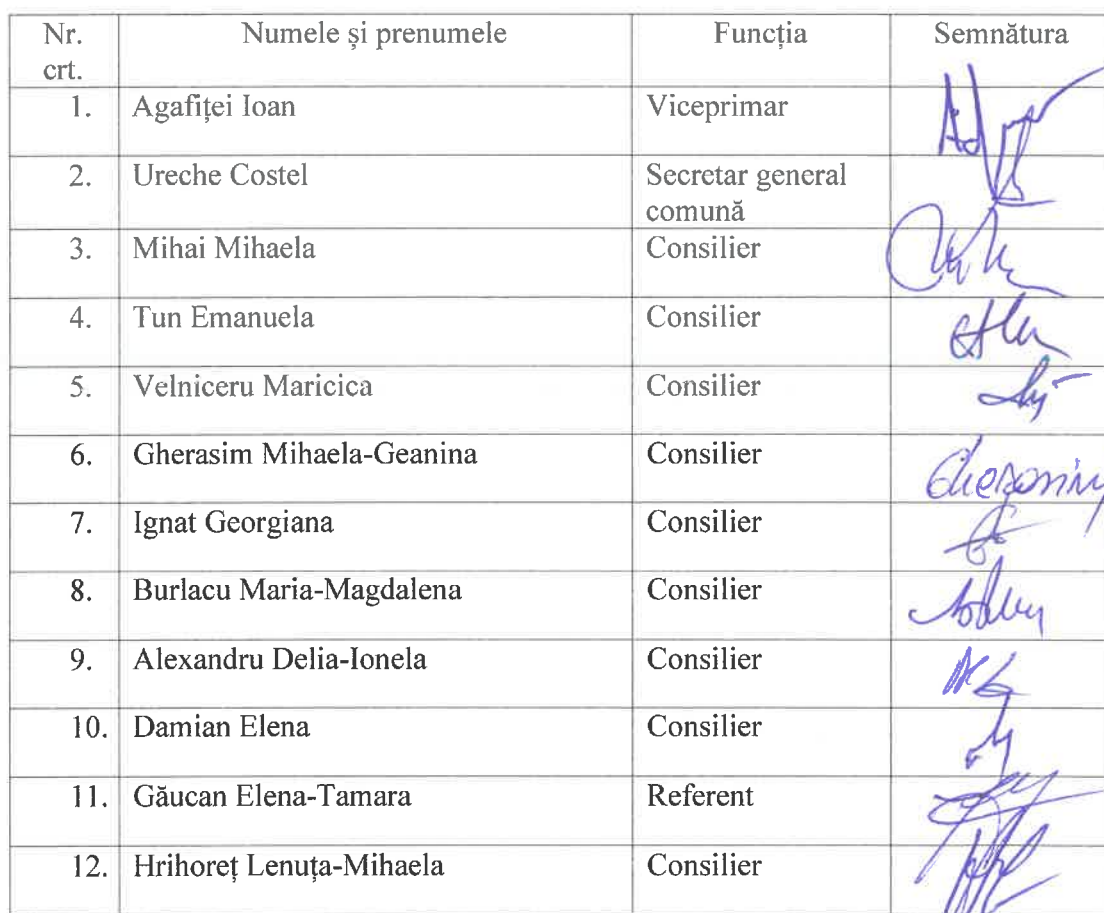 Nr. crt. Numele și prenumele Funcția Semnătura
1. Agafiței Ioan Viceprimar
2. Ureche Costel Secretar general comună
3. Mihai Mihaela Consilier
4. Tun Emanuela Consilier
5. Velniceru Maricica Consilier
6. Gherasim Mihaela-Geanina Consilier
7. Ignat Georgiana Consilier
8. Burlacu Maria-Magdalena Consilier
9. Alexandru Delia-Ionela Consilier
10. Damian Elena Consilier
11. Găucan Elena-Tamara Referent
12. Hrihoreț Lenuța-Mihaela Consilier